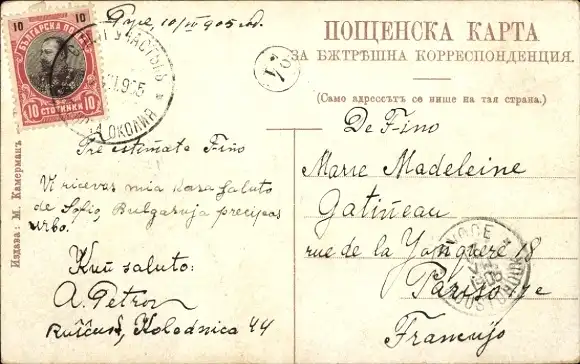 10 10
БЪЛГАРСКА ПОЩА
10 СТОТИНКИ 10
Русе 10/IV 905
ПОЩЕНСКА КАРТА
ЗА ВѪТРѢШНА КОРРЕСПОНДЕНЦИЯ.
(Само адрессътъ се пише на тая страна.)
Издава: М. Камерманъ
Tre estimate Fino
Vi ricevas mia kara saluto
de Sofio, Bulgarujo precipas
urbo.
Kun saluto:
A. Petrov
Kolodnica 44
De Fino
Marie Madeleine
Gatineau
rue de la 18
Paris
Francujo